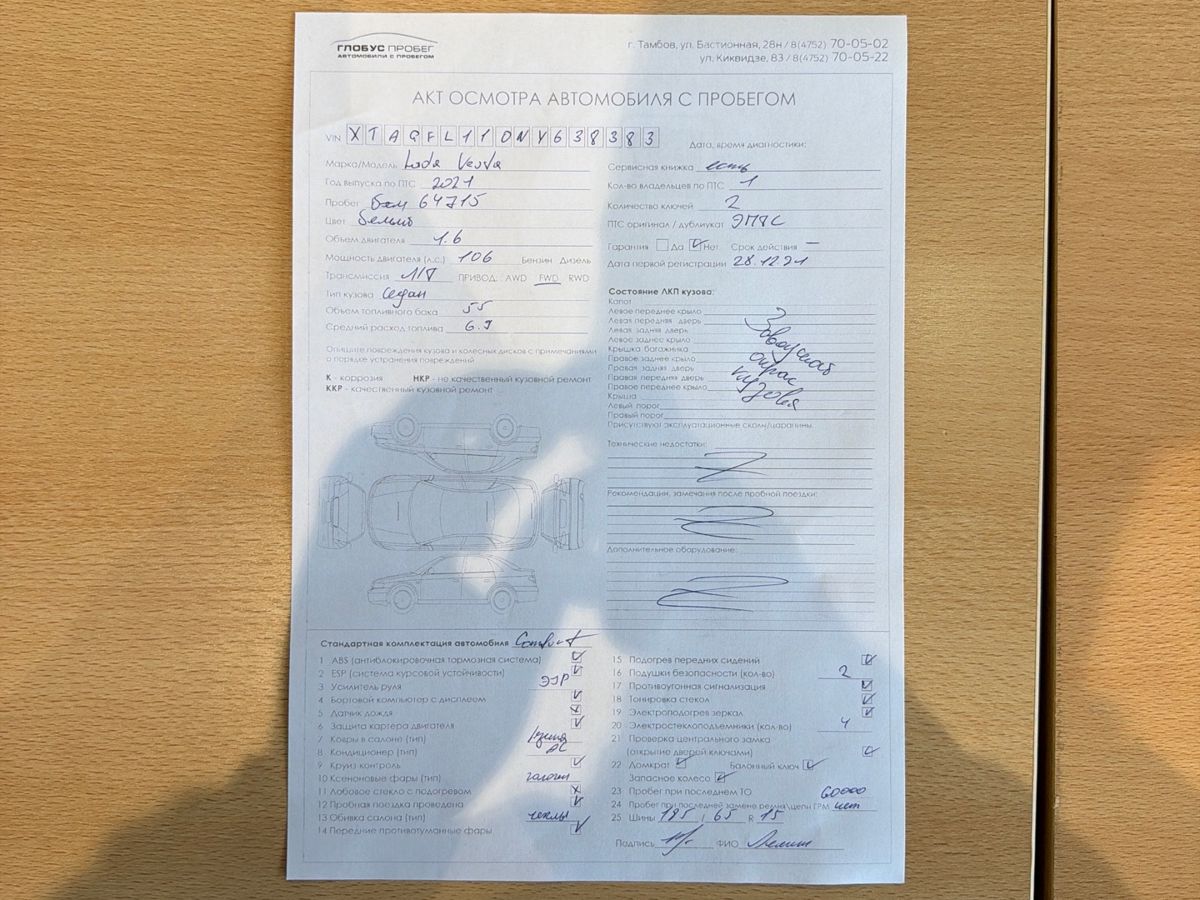 ГЛОБУС ПРОБЕГ
АВТОМОБИЛИ С ПРОБЕГОМ
г. Тамбов, ул. Бастионная, 28н / 8(4752) 70-05-02
ул. Киквидзе, 83 / 8(4752) 70-05-22
АКТ ОСМОТРА АВТОМОБИЛЯ С ПРОБЕГОМ
VIN XTAGFL110NY638383
Марко/Модель Lada Vesta
Год выпуска по ПТС 2021
Пробег 64715
Цвет белый
Объем двигателя 1.6
Мощность двигателя (л.с.) 106 Бензин Дизель
Трансмиссия МТ ПРИВОД: AWD FWD RWD
Тип кузова Седан
Объем топливного бака 55
Средний расход топлива 6.9
Опишите повреждения кузова и колесных дисков с примечаниями
о порядке устранения повреждений
К - коррозия НКР - не качественный кузовной ремонт
ККР - качественный кузовной ремонт
Дата, время диагностики:
Сервисная книжка есть
Кол-во владельцев по ПТС 1
Количество ключей 2
ПТС оригинал / дубликат ЭПТС
Гарантия Да Нет Срок действия —
Дата первой регистрации 28.12.21
Состояние ЛКП кузова:
Капот
Левое переднее крыло
Левая передняя дверь
Левая задняя дверь
Левое заднее крыло
Крышка багажника
Правое заднее крыло
Правая задняя дверь
Правая передняя дверь
Правое переднее крыло
Крыша
Левый порог
Правый порог
Заводской
окрас
кузова
Присутствуют эксплуатационные сколы/царапины.
Технические недостатки:
Рекомендации, замечания после пробной поездки:
Дополнительное оборудование:
Стандартная комплектация автомобиля Comfort
1 ABS (антиблокировочная тормозная система)
2 ESP (система курсовой устойчивости)
3 Усилитель руля ЭУР
4 Бортовой компьютер с дисплеем
5 Датчик дождя
6 Защита картера двигателя
7 Ковры в салоне (тип) резина
8 Кондиционер (тип) AC
9 Круиз-контроль
10 Ксеноновые фары (тип) галоген
11 Лобовое стекло с подогревом
12 Пробная поездка проведена
13 Обивка салона (тип) чехлы
14 Передние противотуманные фары
15 Подогрев передних сидений
16 Подушки безопасности (кол-во) 2
17 Противоугонная сигнализация
18 Тонировка стекол
19 Электроподогрев зеркал
20 Электростеклоподъемники (кол-во) 4
21 Проверка центрального замка
(открытие дверей ключами)
22 Домкрат Балонный ключ
Запасное колесо
23 Пробег при последнем ТО 60000
24 Пробег при последней замене ремня/цепи ГРМ нет
25 Шины 185 / 65 R 15
Подпись ФИО